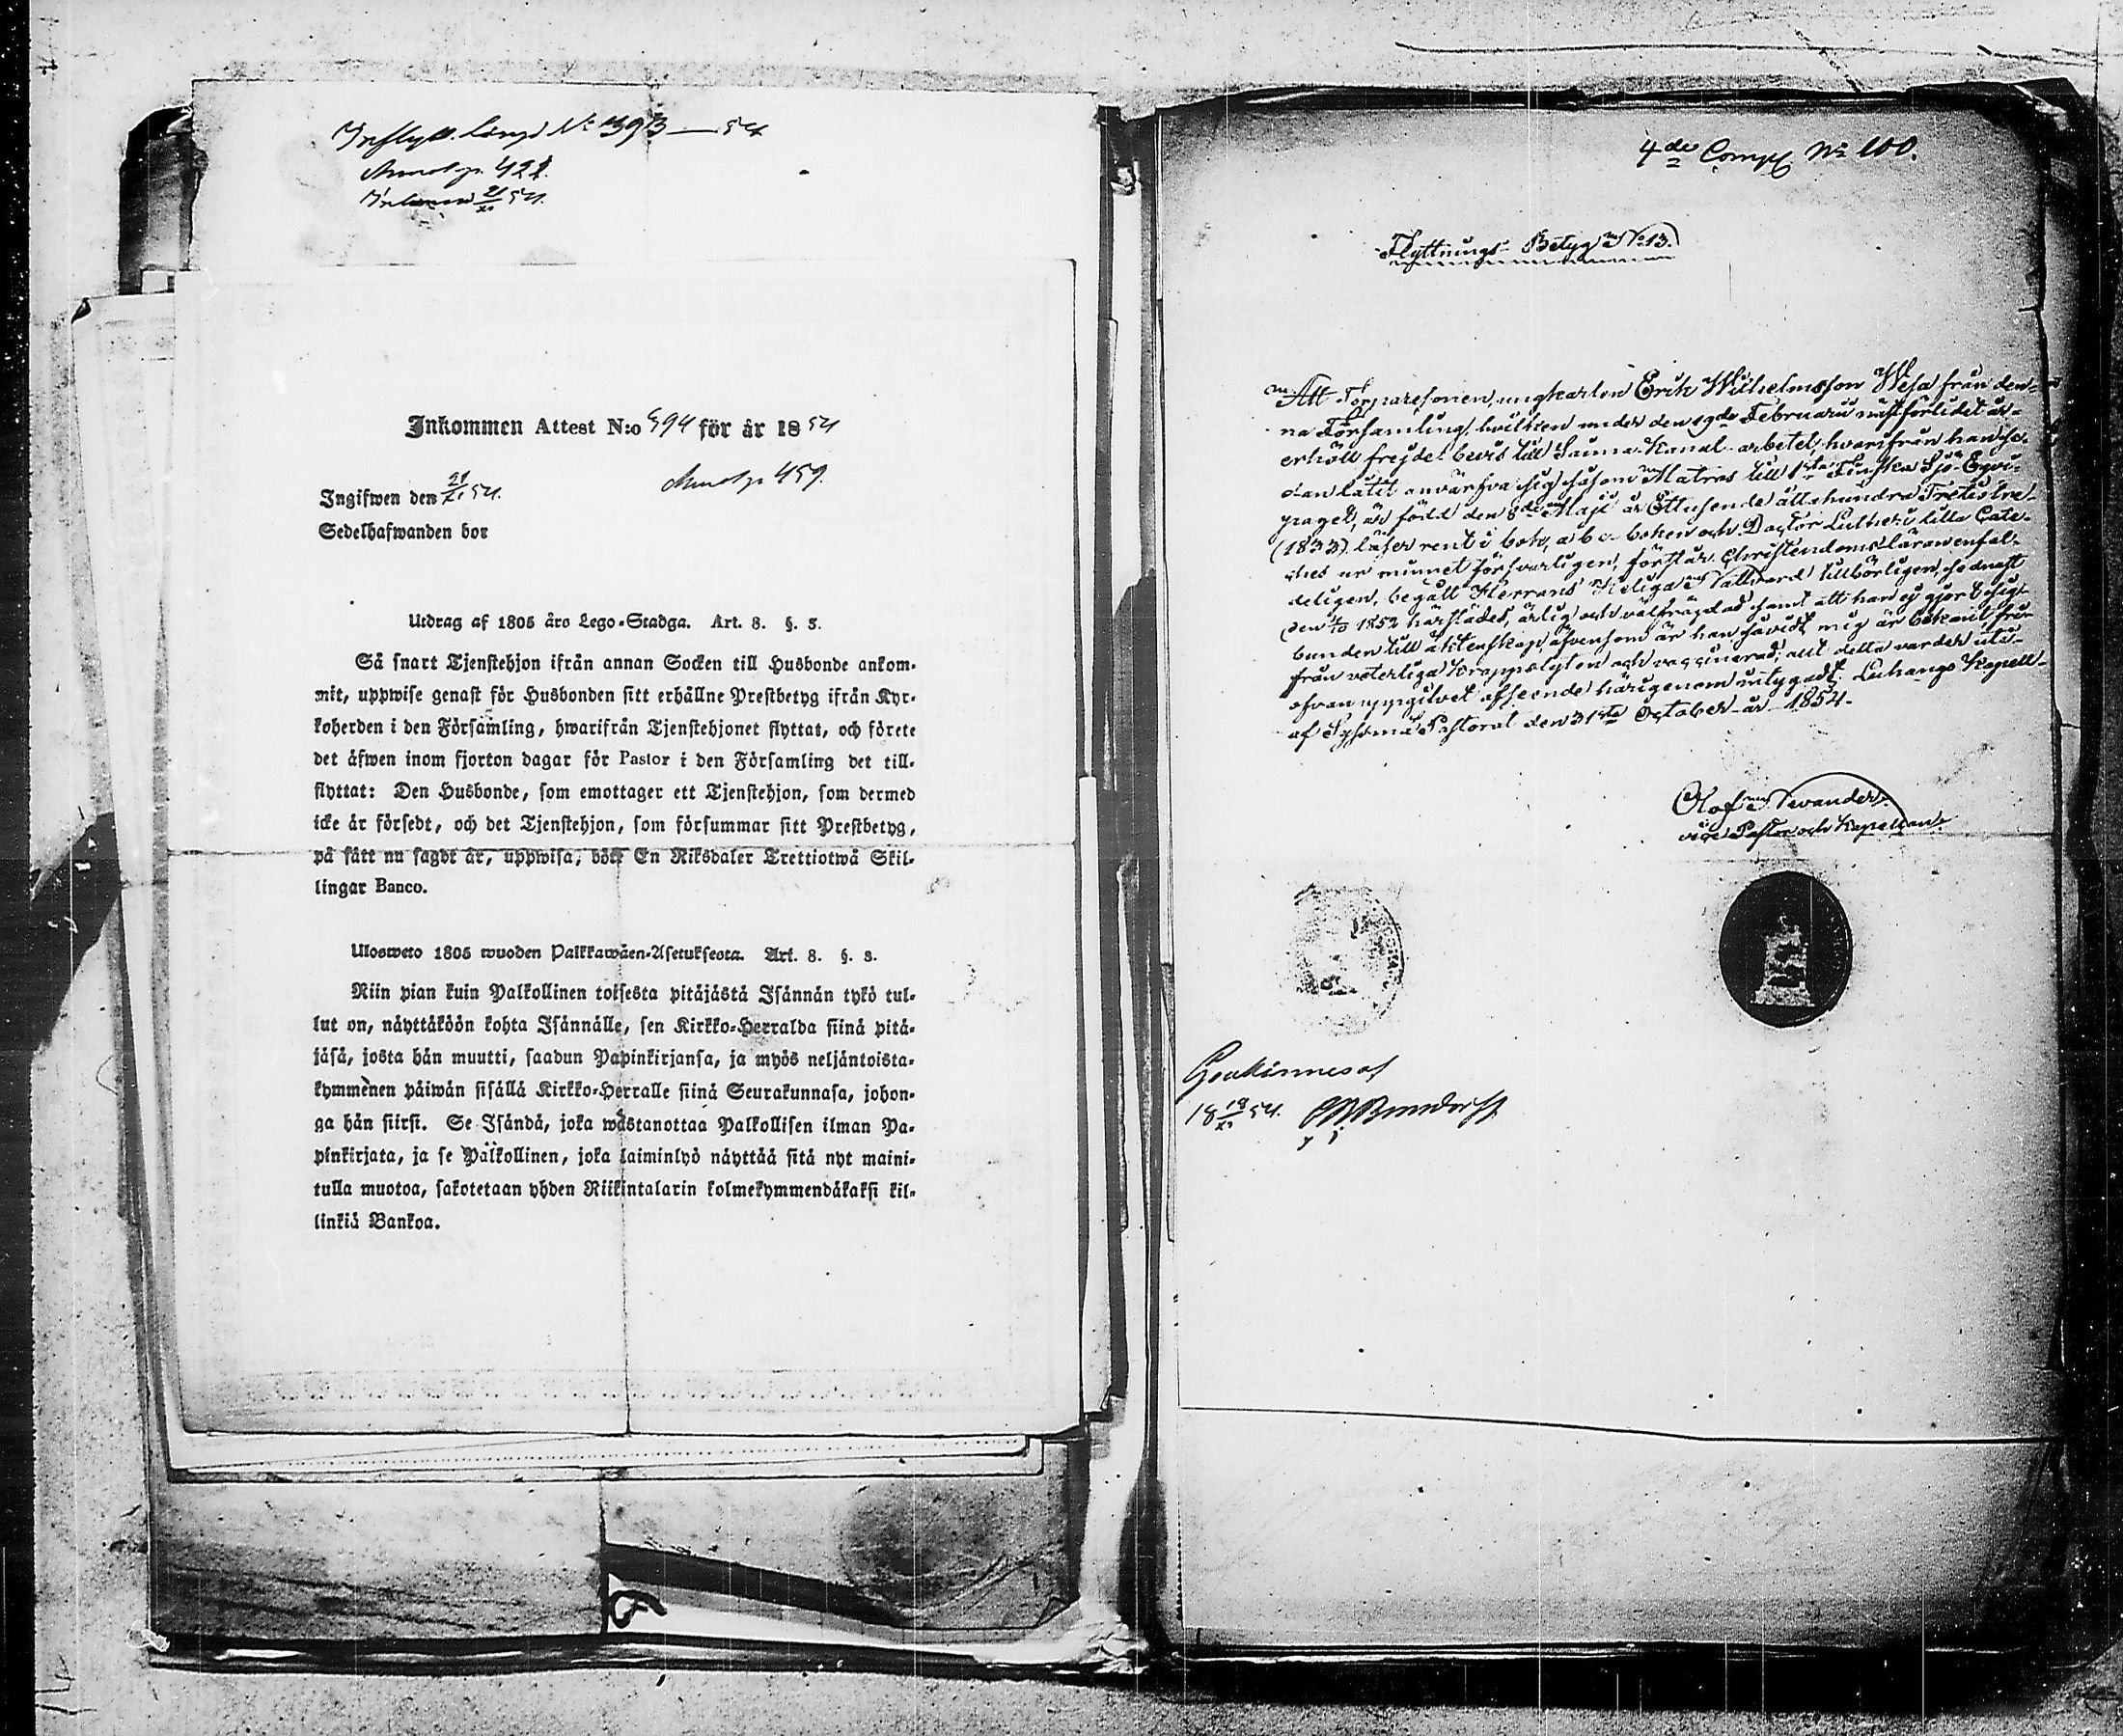 Inflyttn. längd No 393—54
421.
21/XI 54.
Inkommen Attest N:o 394 för år 1854
Ingifwen den 21/XI 54.
459.
Sedelhafwanden bor
Utdrag af 1805 års Lego-Stadga. Art. 8. §. 3.
Så snart Tjenstehjon ifrån annan Socken till Husbonde ankom-
mit, uppwise genast för Husbonden sitt erhållne Prestbetyg ifrån Kyr-
koherden i den Församling, hwarifrån Tjenstehjonet flyttat, och förete
det äfwen inom fjorton dagar för Pastor i den Församling det till-
flyttat: Den Husbonde, som emottager ett Tjenstehjon, som dermed
icke är försedt, och det Tjenstehjon, som försummar sitt Prestbetyg,
på sätt nu sagdt är, uppwisa, böte En Riksdaler Trettiotwå Skil-
lingar Banco.
Ulosweto 1805 wuoden Palkkawäen-Asetuksesta. Art. 8. §. 3.
Niin pian kuin Palkollinen toisesta pitäjästä Isännän tykö tul-
lut on, näyttäköön kohta Isännälle, sen Kirkko-Herralda siinä pitä-
jäsä, josta hän muutti, saadun Papinkirjansa, ja myös neljäntoista-
kymmenen päiwän sisällä Kirkko-Herralle siinä Seurakunnasa, johon-
ga hän siirsi. Se Isändä, joka wastanottaa Palkollisen ilman Pa-
pinkirjata, ja se Palkollinen, joka laiminlyö näyttää sitä nyt maini-
tulla muotoa, sakotetaan yhden Riikintalarin kolmekymmendäkaksi kil-
linkiä Bankoa.
4de Comp. No 100.
Flyttnings-Betyg No 13.
Att Torparesonen, ungkarlen Erik Wilhelmsson Wesa från den-
na Församling, hvilken under den 19de Februarii nästförlidet år
erhöll frejde-bevis till Saima-Kanal-arbetet, hvarifrån han se-
dan låtit anvärfva sig såsom Matros till 1sta Finska Sjö-Equi-
paget, är född den 8de Maji år Ettusende åttahundra Trettiotre
(1833) läser rent i bok, abc-boken och Doctor Lutheri lilla Cate-
ches ur minnet försvarligen, förstår Christendomsläran enfal-
deligen, begått Herrans Heliga Nattvard tillbörligen, sednast
den 1852 härstädes, ärlig och välfrägdad samt att han ej gjort sig
bunden till äktenskap, äfvensom är han såvidt mig är bekant, fri
från veterliga kroppslyten och vaccinerad; allt detta varder uti
ofvanuppgifvet afseende härigenom intygadt. Luhango Kapell
af Sysmä Pastorat den 31sta October år 1854.
Olof Nevander
vice Pastor och Kapellan.
18 18/XI 54.